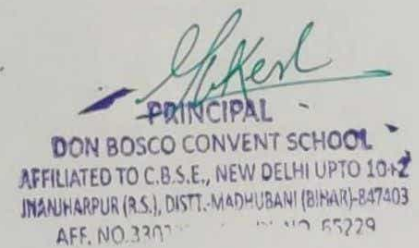 PRINCIPAL
DON BOSCO CONVENT SCHOOL
AFFILIATED TO C.B.S.E., NEW DELHI UPTO 10+2
JHANJHARPUR (R.S.), DISTT.-MADHUBANI (BIHAR)-847403
AFF. NO. 65229